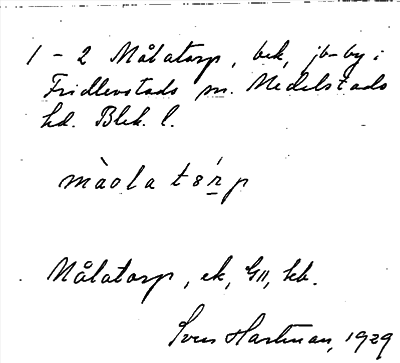 1 - 2 Målatorp, bek, jb-by i
Fridlevstads sn. Medelstads
hd. Blek. l.
màola t8́rp
Målatorp, ek, GII, kb.
Sven Hartman, 1929